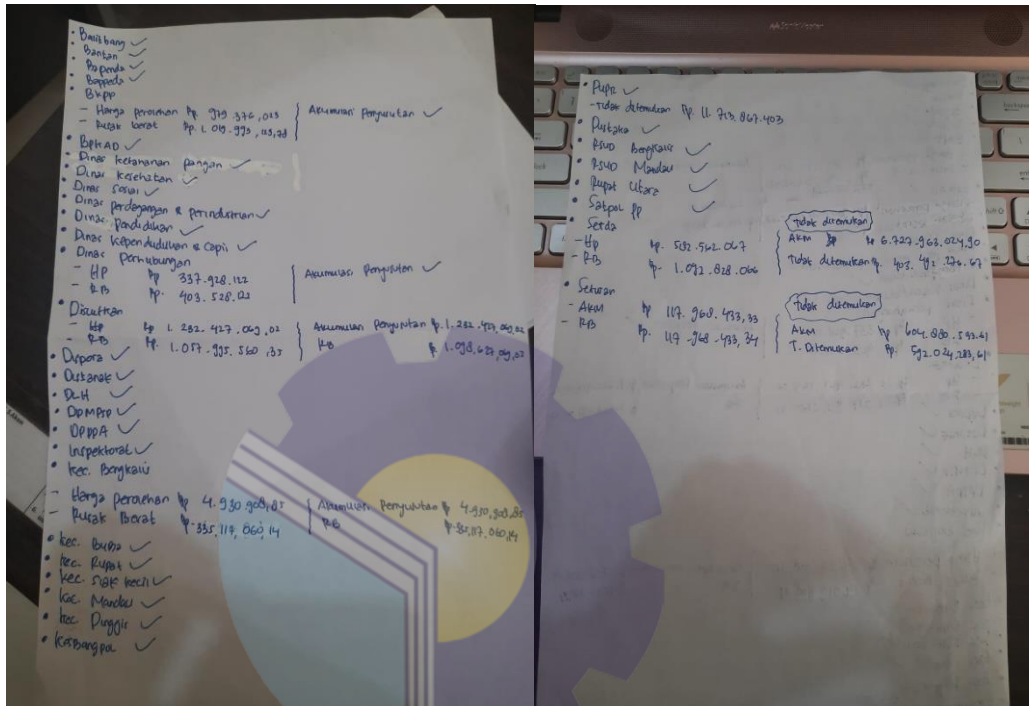 • Balitbang ✓
• Bantan ✓
• Bapenda ✓
• Bappeda ✓
• BKPP
- Harga perolehan Rp. 979.376.013 } Akumulasi Penyusutan ✓
- Rusak berat Rp. 1.019.993.113,78
• BPKAD ✓
• Dinas ketahanan pangan ✓
• Dinas kesehatan ✓
• Dinas sosial ✓
• Dinas perdagangan & perindustrian ✓
• Dinas pendidikan ✓
• Dinas kependudukan & capil ✓
• Dinas perhubungan
- HP Rp 337.928.122 } Akumulasi Penyusutan ✓
- RB Rp. 403.528.122
• Disultkan
- Hp Rp 1.282.427.069,02 } Akumulasi Penyusutan Rp. 1.282.427.069,02
- RB Rp. 1.057.995.560,35 RB Rp. 1.098.627.069,02
• Dispora ✓
• Distanak ✓
• DLH ✓
• DPMPTSP ✓
• DPPPA ✓
• Inspektorat ✓
• kec. Bengkalis
- Harga perolehan Rp 4.930.908,85 | Akumulasi Penyusutan Rp 4.930.908,85
- Rusak Berat Rp. 335.117.060,14 RB
• kec. Rupat ✓
• kec. siak kecil ✓
• kec. Mandau ✓
• kec. Pinggir ✓
• Kesbangpol ✓
• PUPR ✓
- Tidak ditemukan Rp. 11.713.867.403
• Pustaka ✓
• RSUD Bengkalis ✓
• RSUD Mandau ✓
• Rupat Utara ✓
• Satpol PP ✓
• Setda Tidak ditemukan
- Hp Rp. 592.562.067 { AKM Rp 6.727.963.024,90
- RB Rp. 1.092.828.066 Tidak ditemukan Rp. 403.492.276,67
• Setwan Tidak ditemukan
- AKM Rp 117.968.433,33 { AKM Rp 604.880.593,61
- RB Rp. 117.968.433,34 T. Ditemukan Rp. 592.024.283,61